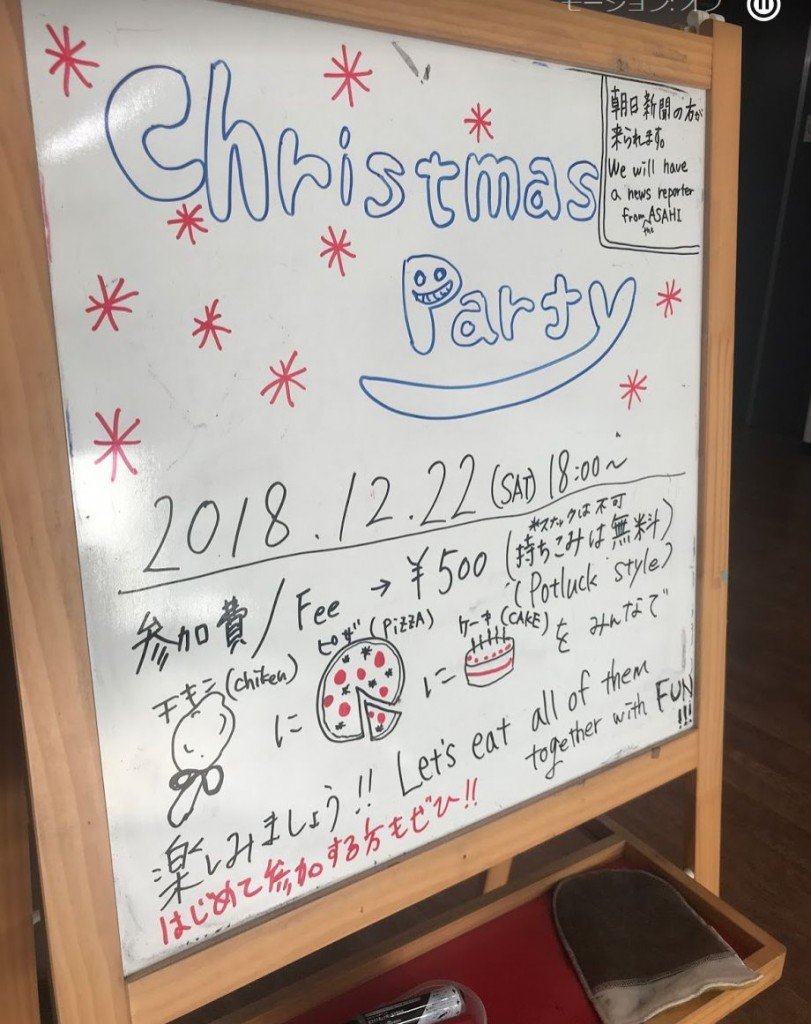 モーション: オフ
Christmas
Party
朝日新聞の方が
来られます。
We will have
a news reporter
from the ASAHI
2018.12.22 (SAT) 18:00~
参加費/Fee → ¥500 (持ちこみは無料)
*スナックは不可
(Potluck style)
チキン (chiken) に ピザ (PiZZA) に ケーキ (CAKE) を みんなで
楽しみましょう!! Let's eat all of them
together with FUN!!!
はじめて参加する方もぜひ!!